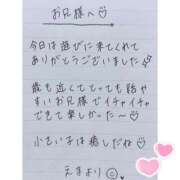 お兄様へ♡
今日は遊びに来てくれて
ありがとうございました
歳も近くてとっても話や
すいお兄様でイチャイチャ
できて楽しかった〜♡
小さい子は癒しだね♡
えまより☺